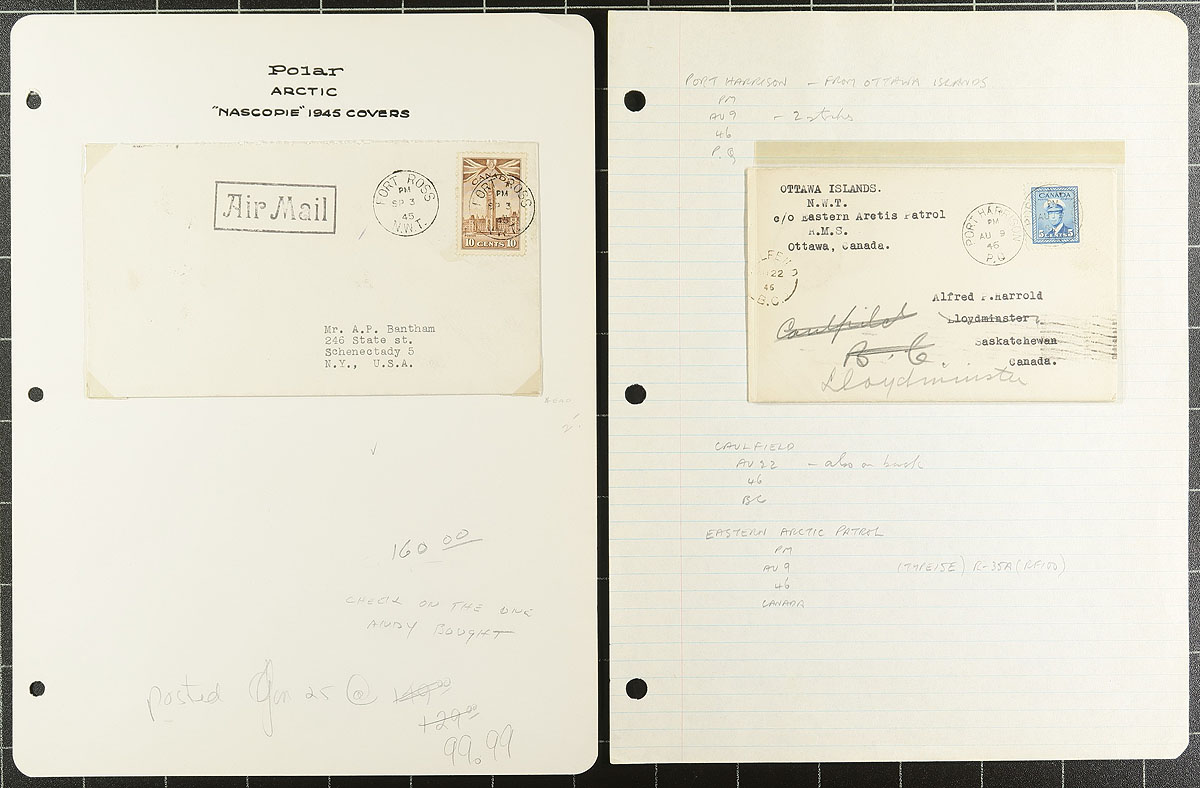 Polar
ARCTIC
"NASCOPIE" 1945 COVERS
Air Mail
FORT ROSS
PM
SP 3
45
N.W.T.
CANADA
FORT ROSS
PM
SP 3
45
10 CENTS 10
Mr. A.P. Bantham
246 State st.
Schenectady 5
N.Y., U.S.A.
160 00
CHECK ON THE ONE
ANDY BOUGHT
posted Jan 25 @ 149 00
129 00
99.99
PORT HARRISON - FROM OTTAWA ISLANDS
PM
AU 9 - 2 strikes
46
P.Q
OTTAWA ISLANDS.
N.W.T.
c/o Eastern Arctis Patrol
R.M.S.
Ottawa, Canada.
PORT HARRISON
PM
AU 9
46
P.Q
CANADA
PM
AU
5 CENTS 5
22
46
B.C.
Alfred P.Harrold
Lloydminster,
Saskatchewan
Canada.
Caulfield
B.C.
Lloydminster
CAULFIELD
AU 22 - also on back
46
BC
EASTERN ARCTIC PATROL
PM
AU 9 (TYPE 15E) R-35A (RF100)
46
CANADA